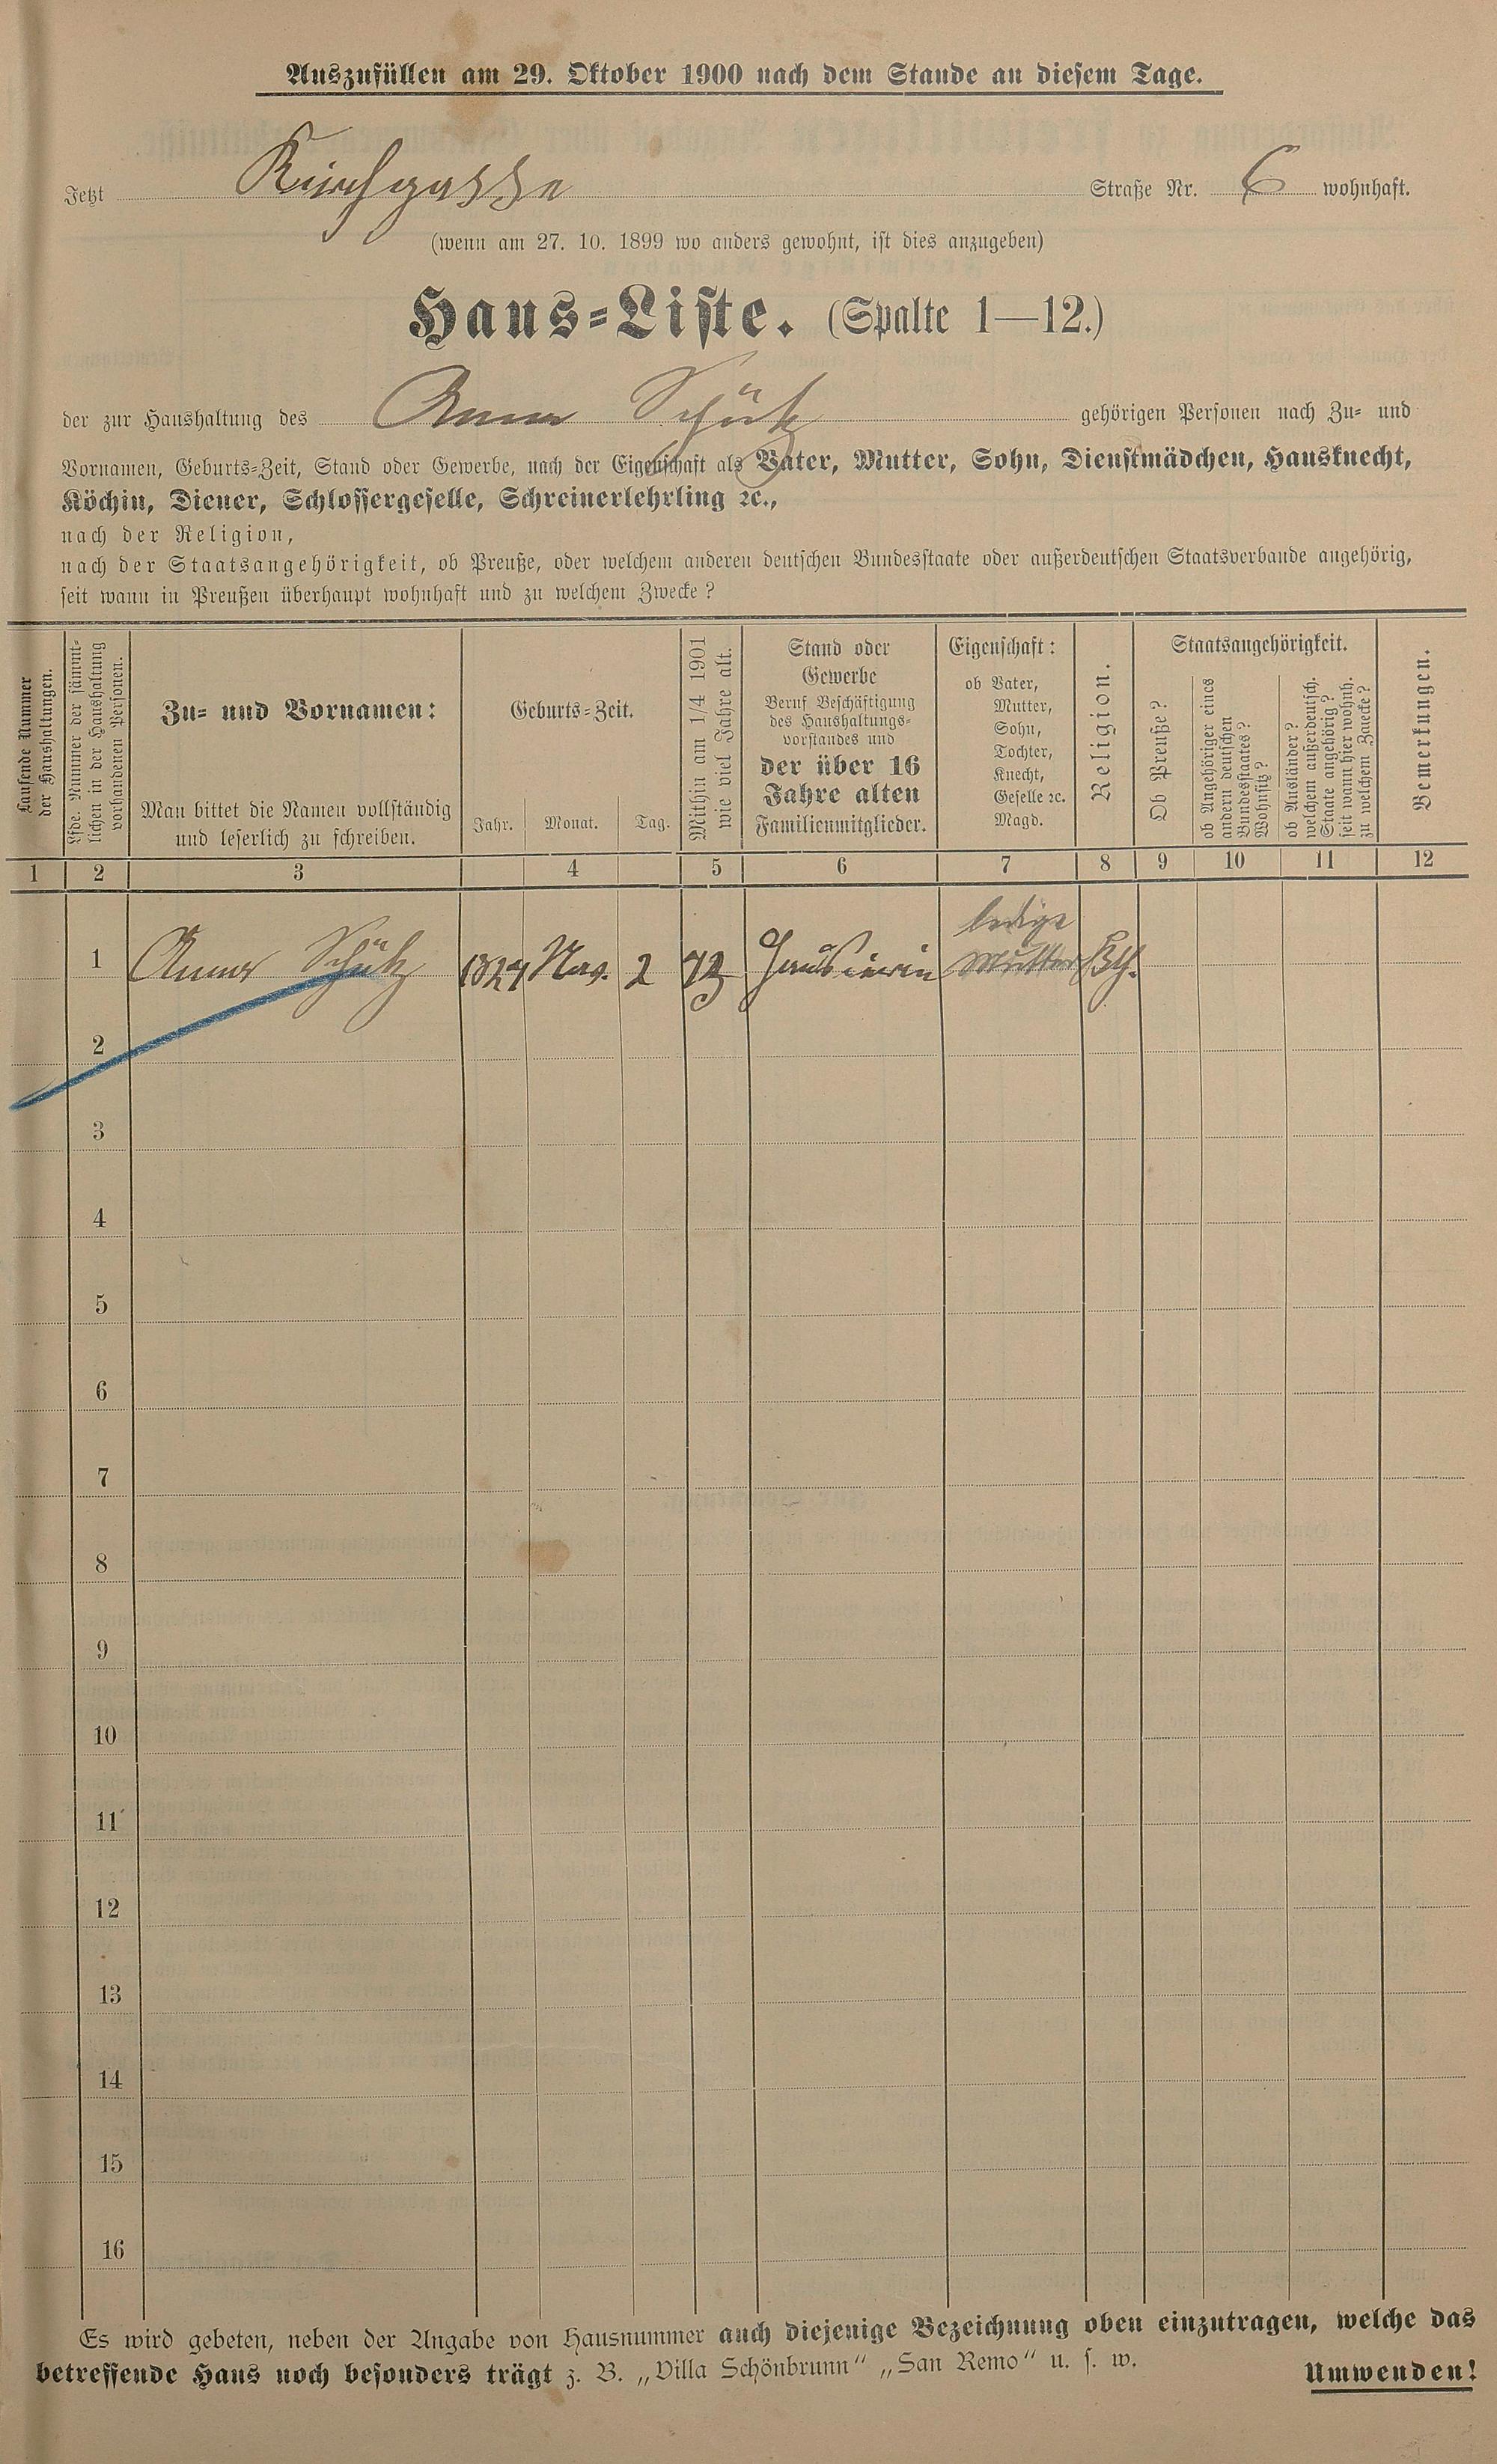 Auszufüllen am 29. Oktober 1900 nach dem Stande an diesem Tage.
Jetzt Kirchgasse Straße Nr. 6 wohnhaft.
(wenn am 27. 10. 1899 wo anders gewohnt, ist dies anzugeben)
Haus=Liste. (Spalte 1—12.)
der zur Haushaltung des Anna Schütz gehörigen Personen nach Zu= und
Vornamen, Geburts=Zeit, Stand oder Gewerbe, nach der Eigenschaft als Vater, Mutter, Sohn, Dienstmädchen, Hausknecht,
Köchin, Diener, Schlossergeselle, Schreinerlehrling ꝛc.,
nach der Religion,
nach der Staatsangehörigkeit, ob Preuße, oder welchem anderen deutschen Bundesstaate oder außerdeutschen Staatsverbande angehörig,
seit wann in Preußen überhaupt wohnhaft und zu welchem Zwecke?
Laufende Nummer
der Haushaltungen.
Lfde. Nummer der sämmt=
lichen in der Haushaltung
vorhandenen Personen.
Zu= und Vornamen:
Man bittet die Namen vollständig
und leserlich zu schreiben.
Geburts=Zeit.
Jahr. Monat. Tag.
Mithin am 1/4 1901
wie viel Jahre alt.
Stand oder
Gewerbe
Beruf Beschäftigung
des Haushaltungs=
vorstandes und
der über 16
Jahre alten
Familienmitglieder.
Eigenschaft:
ob Vater,
Mutter,
Sohn,
Tochter,
Knecht,
Geselle ꝛc.
Magd.
Religion.
Staatsangehörigkeit.
Ob Preuße?
ob Angehöriger eines
andern deutschen
Bundesstaates?
Wohnsitz?
ob Ausländer?
welchem außerdeutsch.
Staate angehörig?
seit wann hier wohnh.
zu welchem Zwecke?
Bemerkungen.
1 2 3 4 5 6 7 8 9 10 11 12
ledige
1 Anna Schütz 1827 Nov. 2 73 Hausiererin Mutter Kth.
2
3
4
5
6
7
8
9
10
11
12
13
14
15
16
Es wird gebeten, neben der Angabe von Hausnummer auch diejenige Bezeichnung oben einzutragen, welche das
betreffende Haus noch besonders trägt z. B. „Villa Schönbrunn“ „San Remo“ u. s. w.
Umwenden!